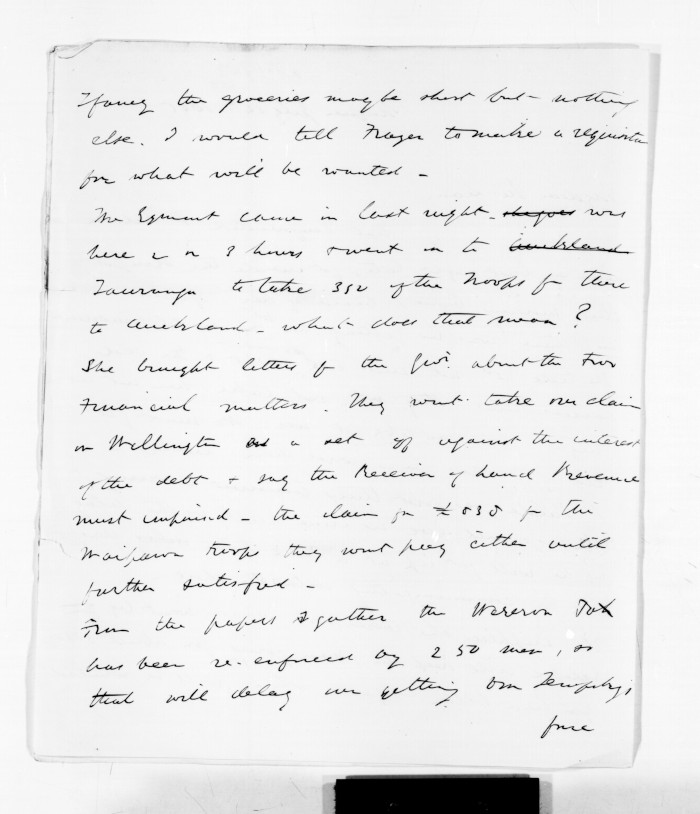 I fancy the groceries maybe short but - nothing
else. I would tell Frazer to make a requisitn
for what will be wanted -
The Egmont came in last night - she goes was
here 2 or 3 hours & went on to Auckland
Tauranga to take 350 of the Troops fm there
to Auckland - what does that mean?
She brought letters fm the Govt. about the two
Financial matters. They wont take our claim
on Wellington as a set off against the interest
of the debt & say the Receiver of Land Revenue
must impound - the claim for £838 for the
Waipawa troops they wont pay either until
further satisfied -
From the papers I gather the Wereroa Pah
has been re-enforced by 250 men, so
that will delay our getting Von Tempsky's
force